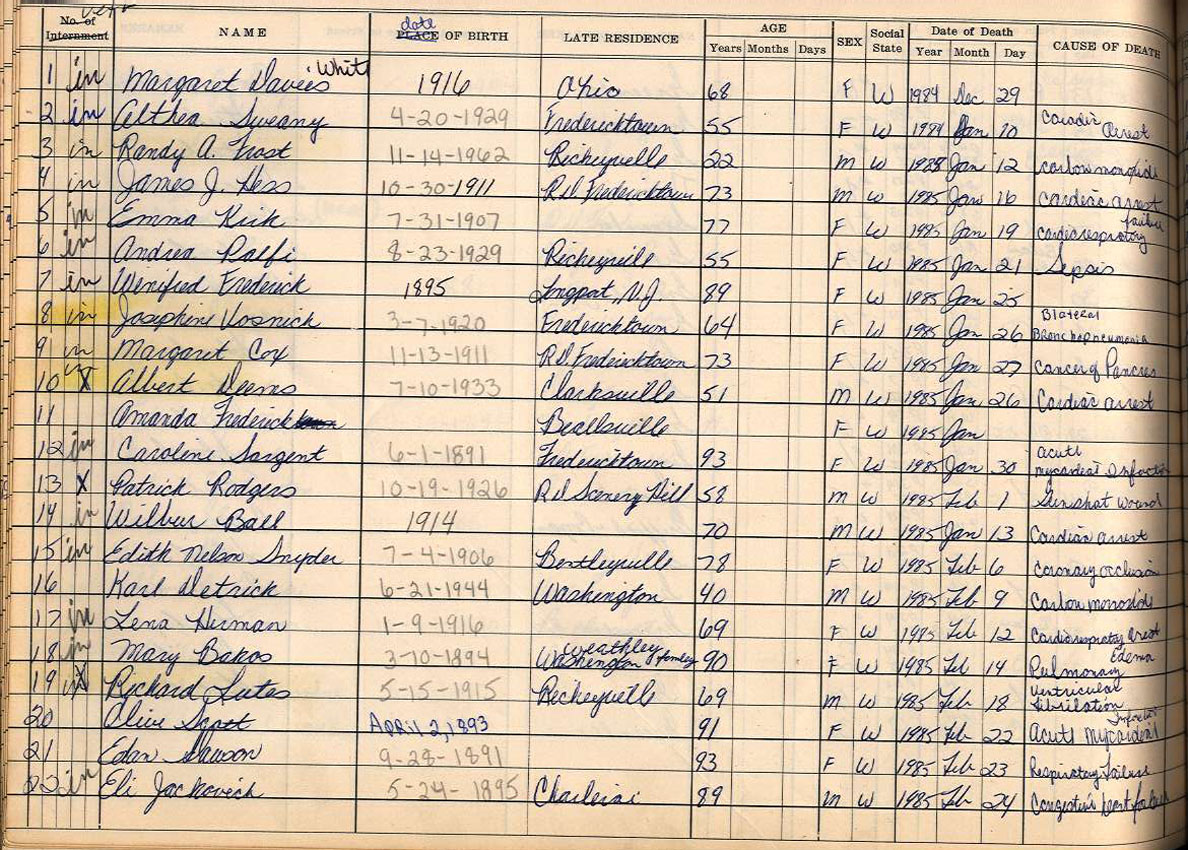 vetr
No. of Internment NAME date PLACE OF BIRTH LATE RESIDENCE AGE Years Months Days SEX Social State Date of Death Year Month Day CAUSE OF DEATH
1 in Margaret Davies White 1916 Ohio 68 F W 1984 Dec 29
2 in Althea Sweany 4-20-1929 Fredericktown 55 F W 1984 Jan 10 Cardiac Arrest
3 in Randy A. Frost 11-14-1962 Richeyville 22 M W 1985 Jan 12 carbon monoxide
4 in James J. Hess 10-30-1911 Rd Fredericktown 73 M W 1985 Jan 16 cardiac arrest
5 in Emma Kirk 7-31-1907 77 F W 1985 Jan 19 cardiorespratory failure
6 in Andrea Palfi 8-23-1929 Richeyville 55 F W 1985 Jan 21 Sepsis
7 in Winified Frederick 1895 Longport, N.J. 89 F W 1985 Jan 25
8 in Josephine Vosnick 3-7-1920 Fredericktown 64 F W 1985 Jan 26 Blateral Bronchopneumonia
9 in Margaret Cox 11-13-1911 Rd Fredericktown 73 F W 1985 Jan 27 cancer of Pancres
10 in X Albert Deems 7-10-1933 Clarksville 51 M W 1985 Jan 26 Cardiac arrest
11 Amanda Fredericktown Beallsville F W 1985 Jan
12 in Caroline Sargent 6-1-1891 Fredericktown 93 F W 1985 Jan 30 acute mycardeal Infarction
13 X Patrick Rodgers 10-19-1926 Rd Scenery Hill 58 M W 1985 Feb 1 Gunshot Wound
14 in Wilbur Ball 1914 70 M W 1985 Jan 13 Cardian arrest
15 in Edith Nelson Snyder 7-4-1906 Bentleyville 78 F W 1985 Feb 6 Coronary occlusion
16 Karl Detrick 6-21-1944 Washington 40 M W 1985 Feb 9 Carbon monoxide
17 in Lena Herman 1-9-1916 69 F W 1985 Feb 12 Cardiorespratory Arrest
18 in Mary Bakos 3-10-1894 Weathley Washington family 90 F W 1985 Feb 14 Pulmonary Edema
19 in X Richard Lutes 5-15-1915 Richeyville 69 M W 1985 Feb 18 Ventricular fibrilation
20 Olive Scott April 2, 1893 91 F W 1985 Feb 22 Acute Mycardial Infarction
21 Edan Dawson 9-28-1891 93 F W 1985 Feb 23 Respiratory Failure
22 in Eli Jackovich 5-24-1895 Charleroi 89 M W 1985 Feb 24 Congestive heart failure